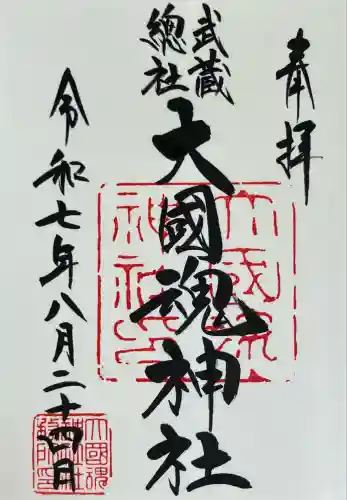 奉拝
武蔵
總社
大國魂神社
令和七年八月二十四日